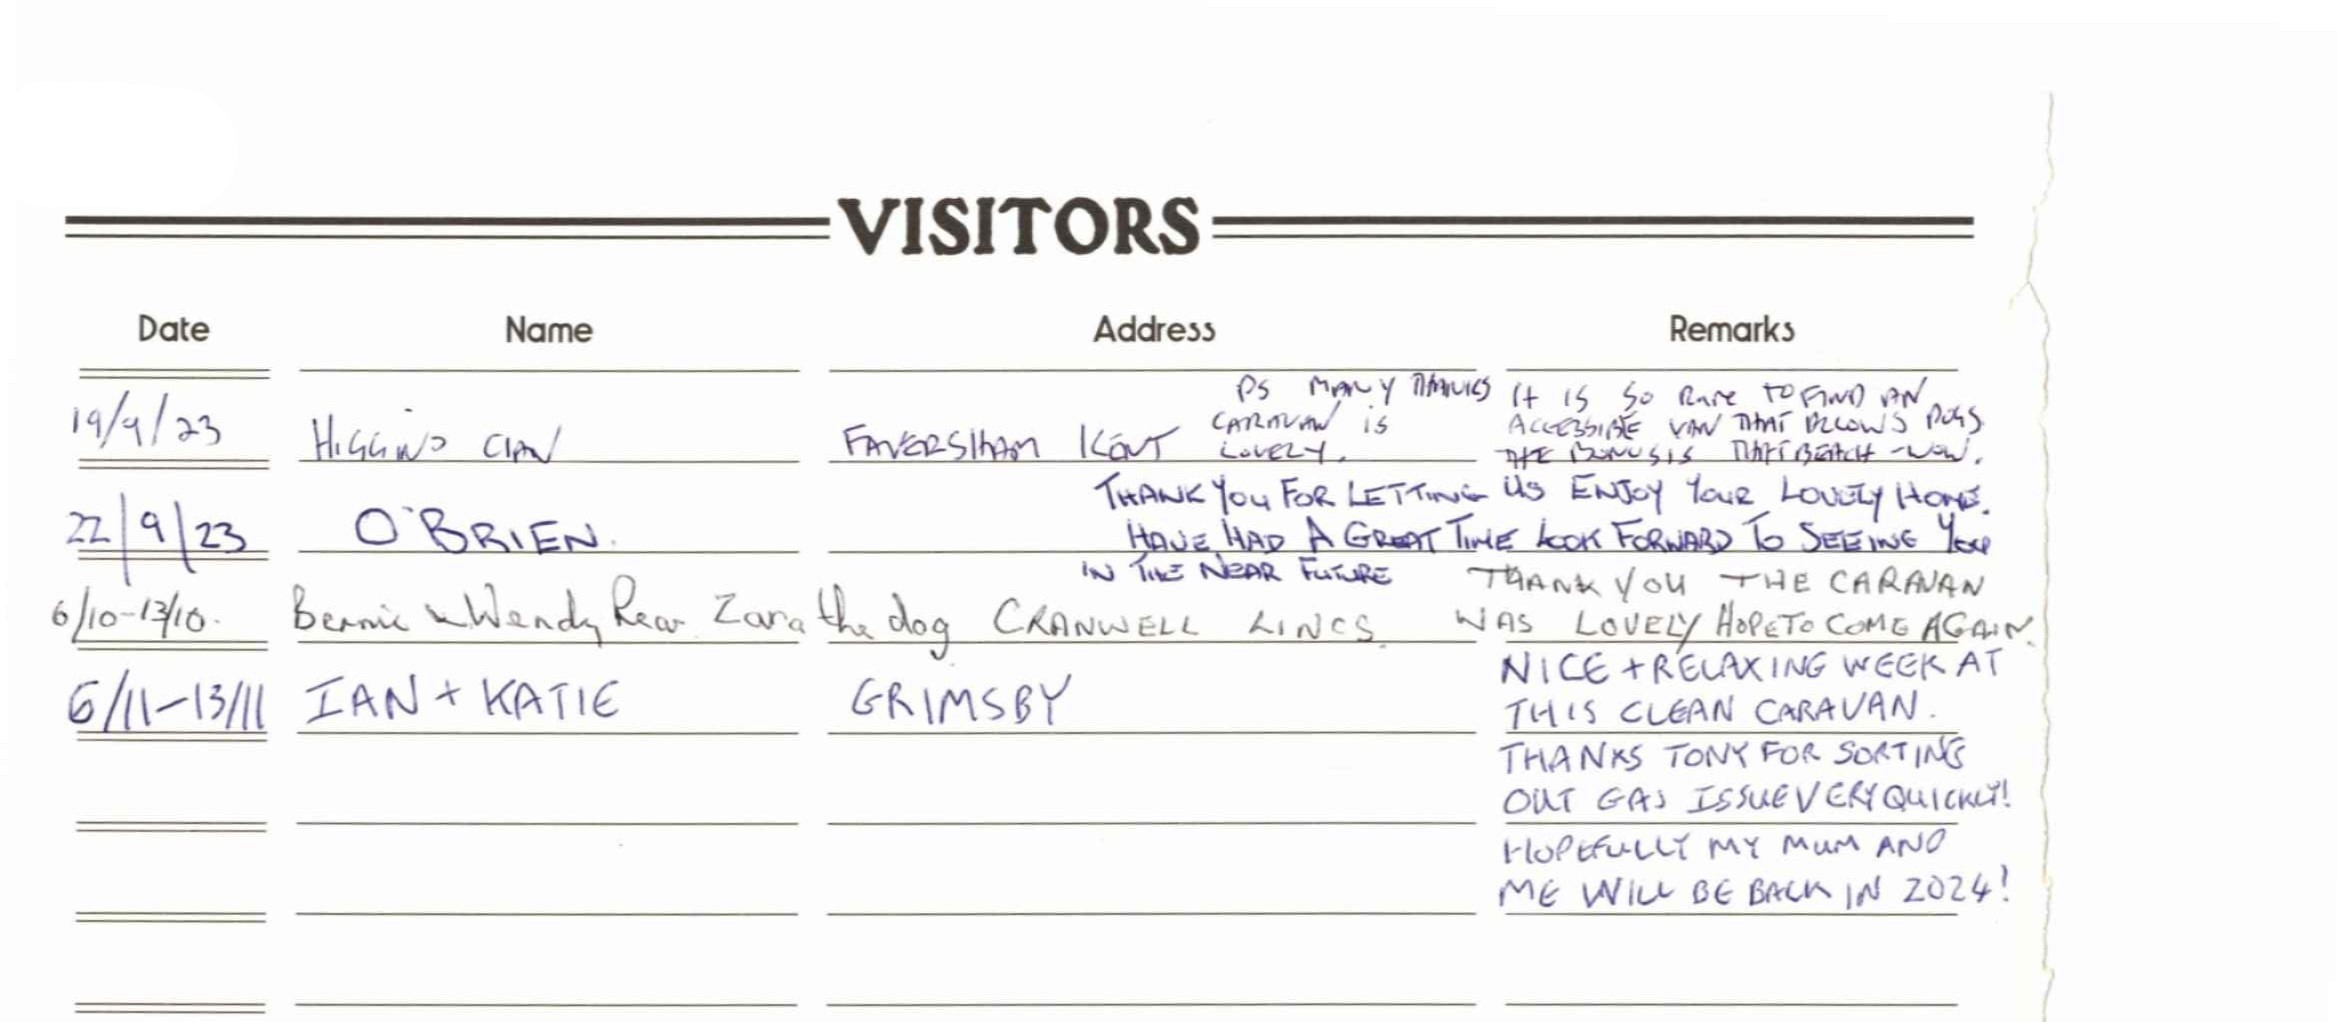 VISITORS
Date Name Address Remarks
19/9/23 HIGGINS CLAN FAVERSHAM KENT
PS MANY THANKS
CARAVAN IS
LOVELY.
It IS SO RARE TO FIND AN
ACCESSIBLE VAN THAT ALLOWS DOGS
THE BONUS IS THAT BEACH - WOW.
22/9/23 O'BRIEN.
THANK YOU FOR LETTING US ENJOY YOUR LOVELY HOME.
HAVE HAD A GREAT TIME LOOK FORWARD TO SEEING YOU
IN THE NEAR FUTURE
6/10-13/10. Bernie & Wendy Rear Zara the dog CRANWELL LINCS.
THANK YOU THE CARAVAN
WAS LOVELY HOPE TO COME AGAIN.
6/11-13/11 IAN + KATIE GRIMSBY
NICE + RELAXING WEEK AT
THIS CLEAN CARAVAN.
THANKS TONY FOR SORTING
OUT GAS ISSUE VERY QUICKLY!
HOPEFULLY MY MUM AND
ME WILL BE BACK IN 2024!